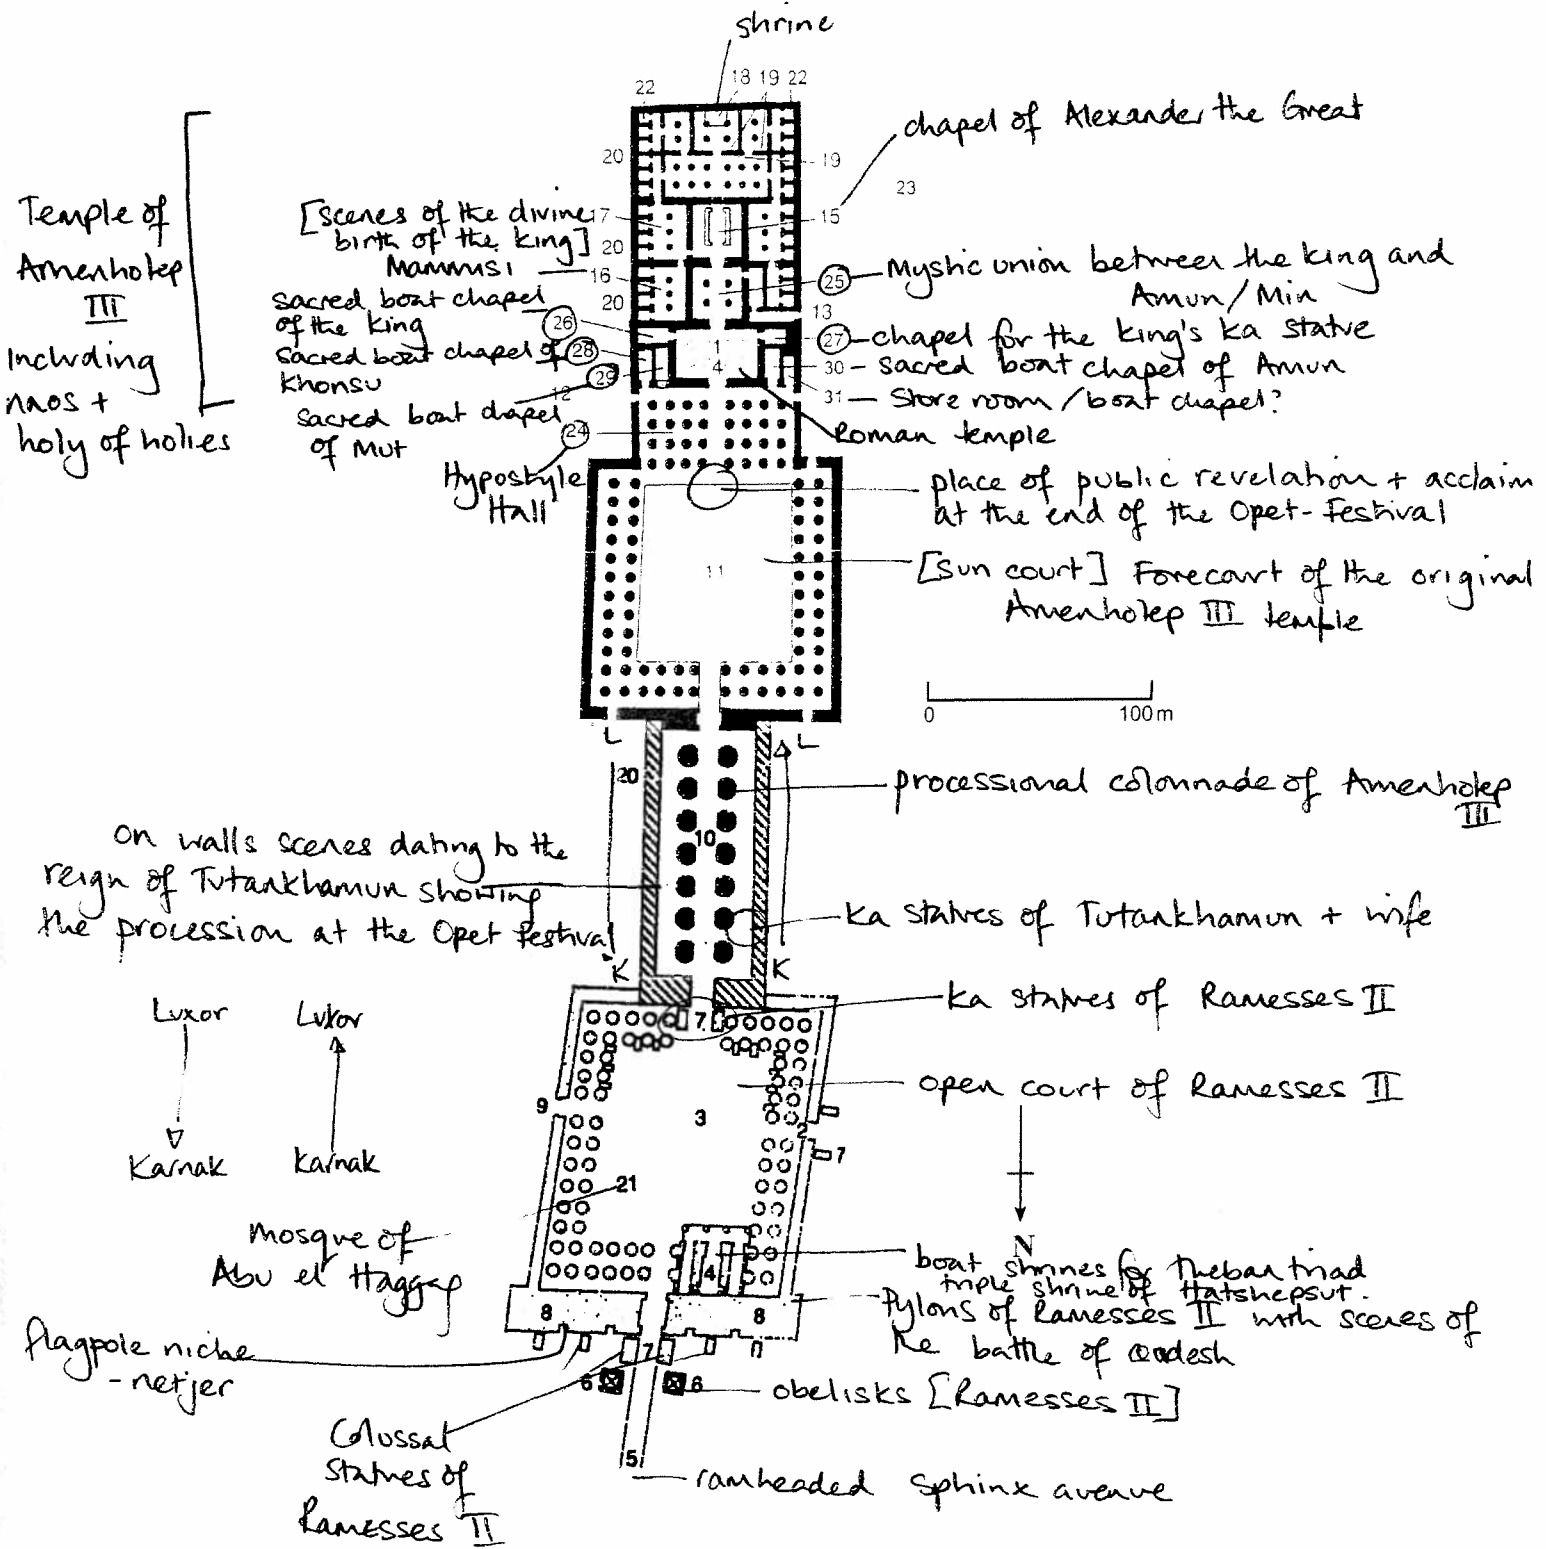 shrine
22
18 19 22
chapel of Alexander the Great
20
19
23
Temple of
Amenhotep
III
Including
naos +
holy of holies
[scenes of the divine
birth of the king]
17
15
20
Mammisi
16
25
Mystic union between the king and
Amun/Min
20
13
sacred boat chapel
of the king
26
1
4
27
chapel for the king's ka statue
sacred boat chapel of
Khonsu
28
30 - sacred boat chapel of Amun
29
12
31 - Store room / boat chapel?
sacred boat chapel
of Mut
24
Roman temple
Hypostyle
Hall
place of public revelation + acclaim
at the end of the Opet-Festival
11
[sun court] Forecourt of the original
Amenhotep III temple
0 100m
L
L
20
processional colonnade of Amenhotep
III
10
on walls scenes dating to the
reign of Tutankhamun showing
the procession at the Opet festival
ka statues of Tutankhamun + wife
K
K
Luxor
Luxor
Karnak
Karnak
7
ka statues of Ramesses II
open court of Ramesses II
9
3
2
7
21
N
Mosque of
Abu el Haggag
4
boat shrines for Theban triad
triple shrine of Hatshepsut.
8
8
Pylons of Ramesses II with scenes of
the battle of Qadesh
flagpole niche
- netjer
7
6
6
obelisks [Ramesses II]
Colossal
Statues of
Ramesses II
5
ramheaded sphinx avenue